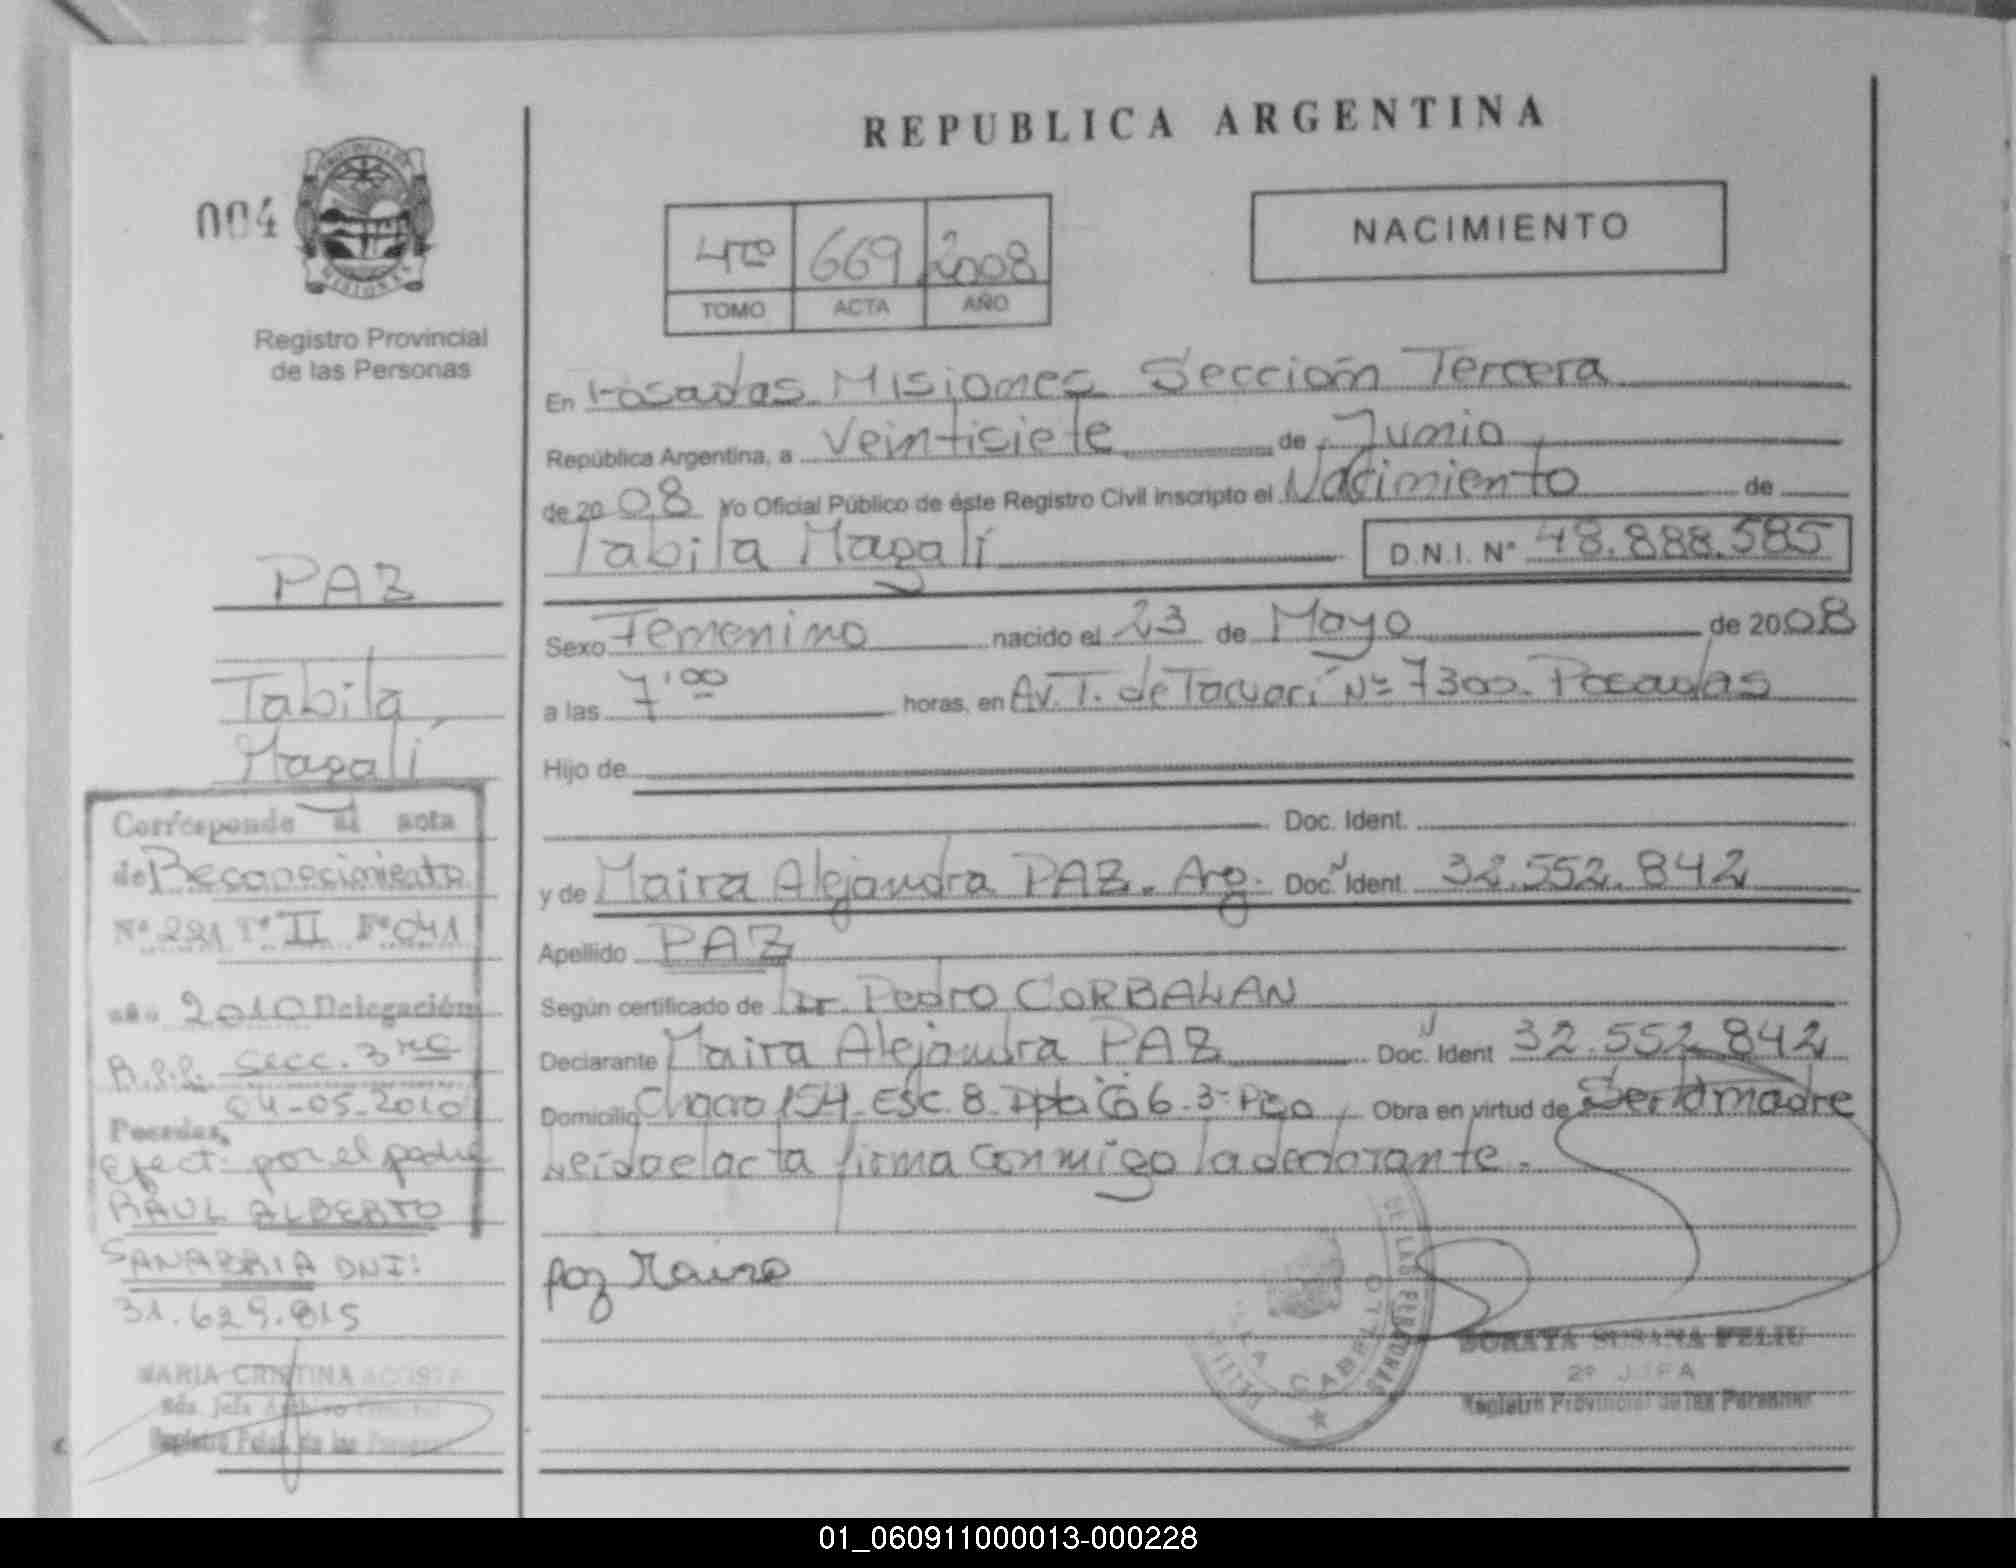 REPUBLICA ARGENTINA
004
NACIMIENTO
4to 669 2008
TOMO ACTA AÑO
Registro Provincial
de las Personas
En Posadas Misiones Sección Tercera
República Argentina, a Veintisiete de Junio
de 2008 Yo Oficial Público de éste Registro Civil inscripto el Nacimiento de
Tabila Magalí D.N.I. Nº 48.888.585
Sexo Femenino nacido el 23 de Mayo de 2008
a las 7'00 horas, en Av. T. de Tacuarí Nº 7300. Posadas
Hijo de
Doc. Ident.
y de Maira Alejandra PAZ. Arg. Doc. Ident. 32.552.842
Apellido PAZ
Según certificado de Dr. Pedro CORBALAN
Declarante Maira Alejandra PAZ Doc. Ident 32.552.842
Domicilio Chacra 154. Esc. 8. Dpto 6. 3º Piso Obra en virtud de Ser la madre
Leida el acta firma conmigo la declarante.
Paz Maira
SORAYA SUSANA FELIU
2º JEFA
Registro Provincial de las Personas
DE LAS PERSONAS
PAZ
Tabila
Magalí
Corresponde al acta
de Reconocimiento
Nº 221 Tº II Fº 041
año 2010 Delegación
R.P.P. Secc. 3ra
Posadas, 04-05-2010
Efect. por el padre
RAUL ALBERTO
SANABRIA DNI:
31.629.815
MARIA CRISTINA ACOSTA
Registro Pcial. de las Personas
01_060911000013-000228